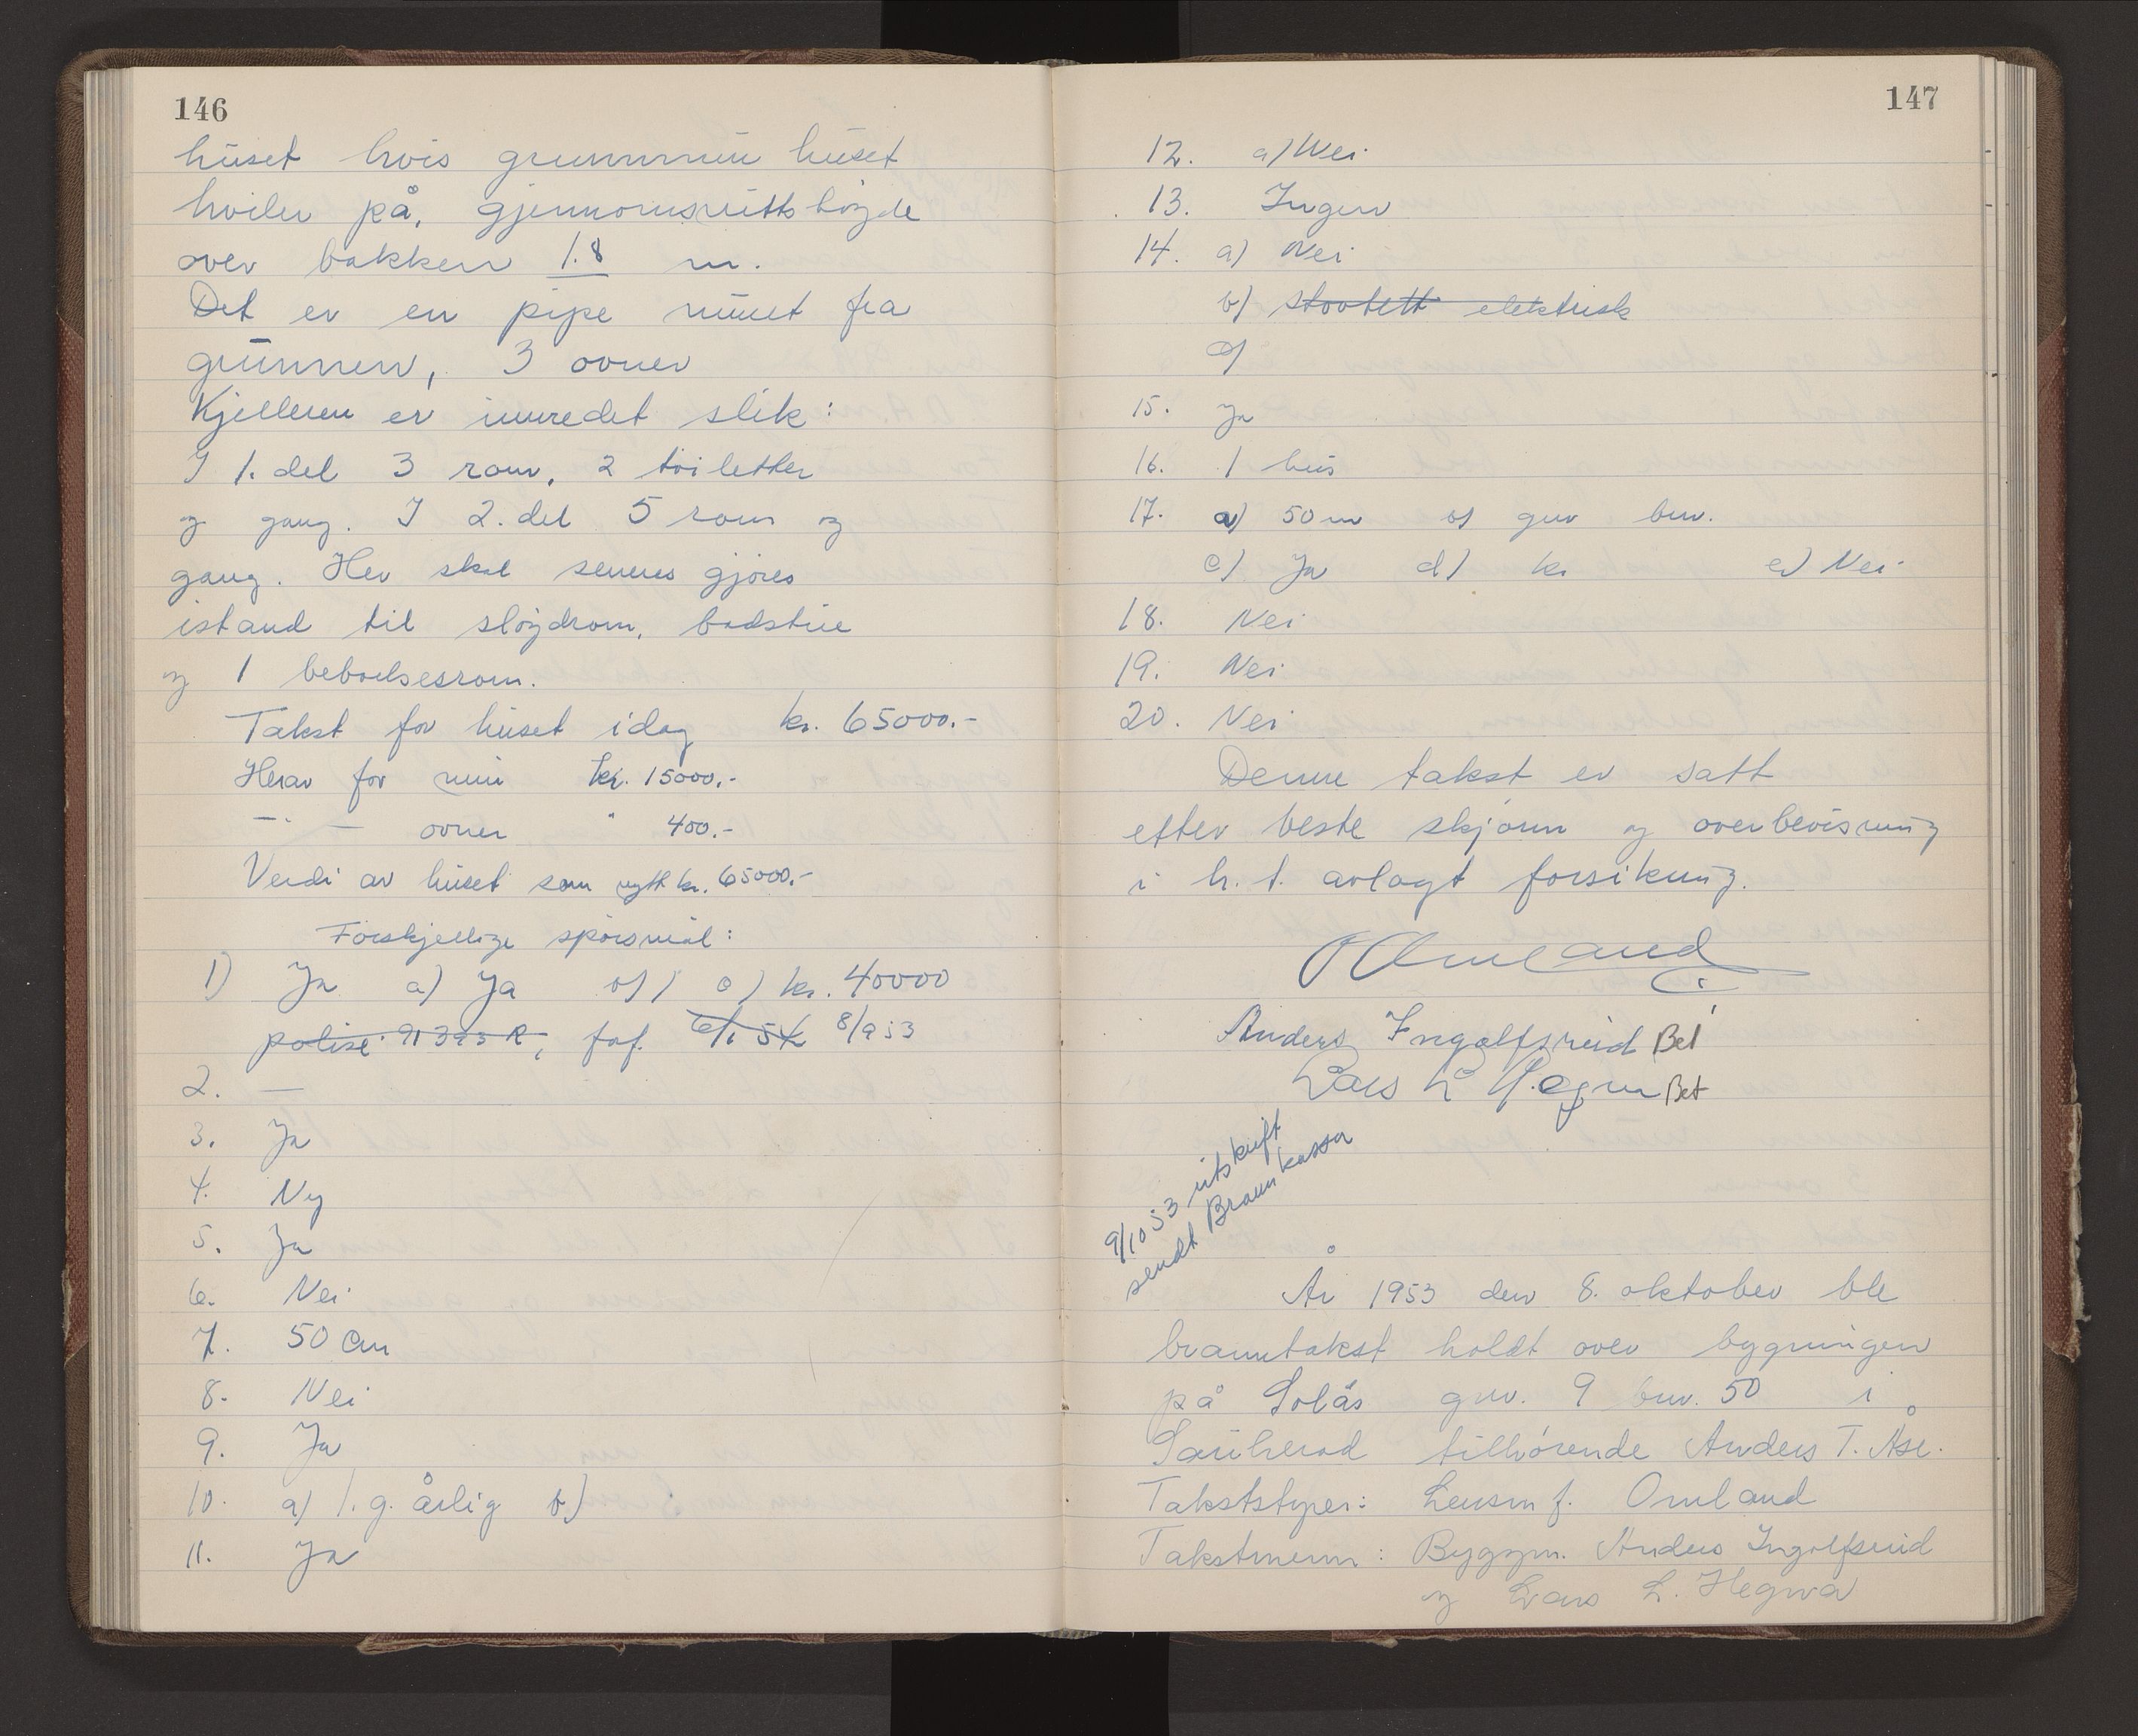 146
huset hvis grunnmur huset
hviler på, gjennomsnittshöyde
over bakken 1.8 m.
Det er en pipe muret fra
grunnen, 3 ovner
Kjelleren er innredet slik:
I 1. del 3 rom, 2 toiletter
og gang. I 2. del 5 rom og
gang. Her skal senere gjöres
istand til slöydrom, badstue
og 1 beboelsesrom.
Takst for huset idag kr. 65000.-
Herav for mur kr. 15000.-
— " — ovner " 400.-
Verdi av huset som nytt kr. 65000.-
Forskjellige spörsmål:
1) Ja a) Ja b) c) kr. 40000
polise 91393 R, faf. 6/1 54 8/9 53
2. —
3. Ja
4. Ny
5. Ja
6. Nei
7. 50 cm
8. Nei
9. Ja
10. a) 1. g. årlig b)
11. Ja
147
12. a) Nei
13. Ingen
14. a) Nei
b) elektrisk
c)
15. Ja
16. 1 hus
17. a) 50 m b) gnr bnr.
c) Ja d) kr e) Nei
18. Nei
19. Nei
20. Nei
Denne takst er satt
efter beste skjönn og overbevisning
i h. t. avlagt forsikring.
Omland
Anders Ingolfsrud Bet
Lars L Hegna Bet
9/10 53 utskrift
sendt Brannkassa
År 1953 den 8. oktober ble
branntakst holdt over bygningen
på Solås gnr. 9 bnr. 50 i
Sauherad tilhörende Anders T. Åse.
Takststyrer: Lensm f. Omland
Takstmenn: Byggm. Anders Ingolfsrud
og Lars L. Hegna